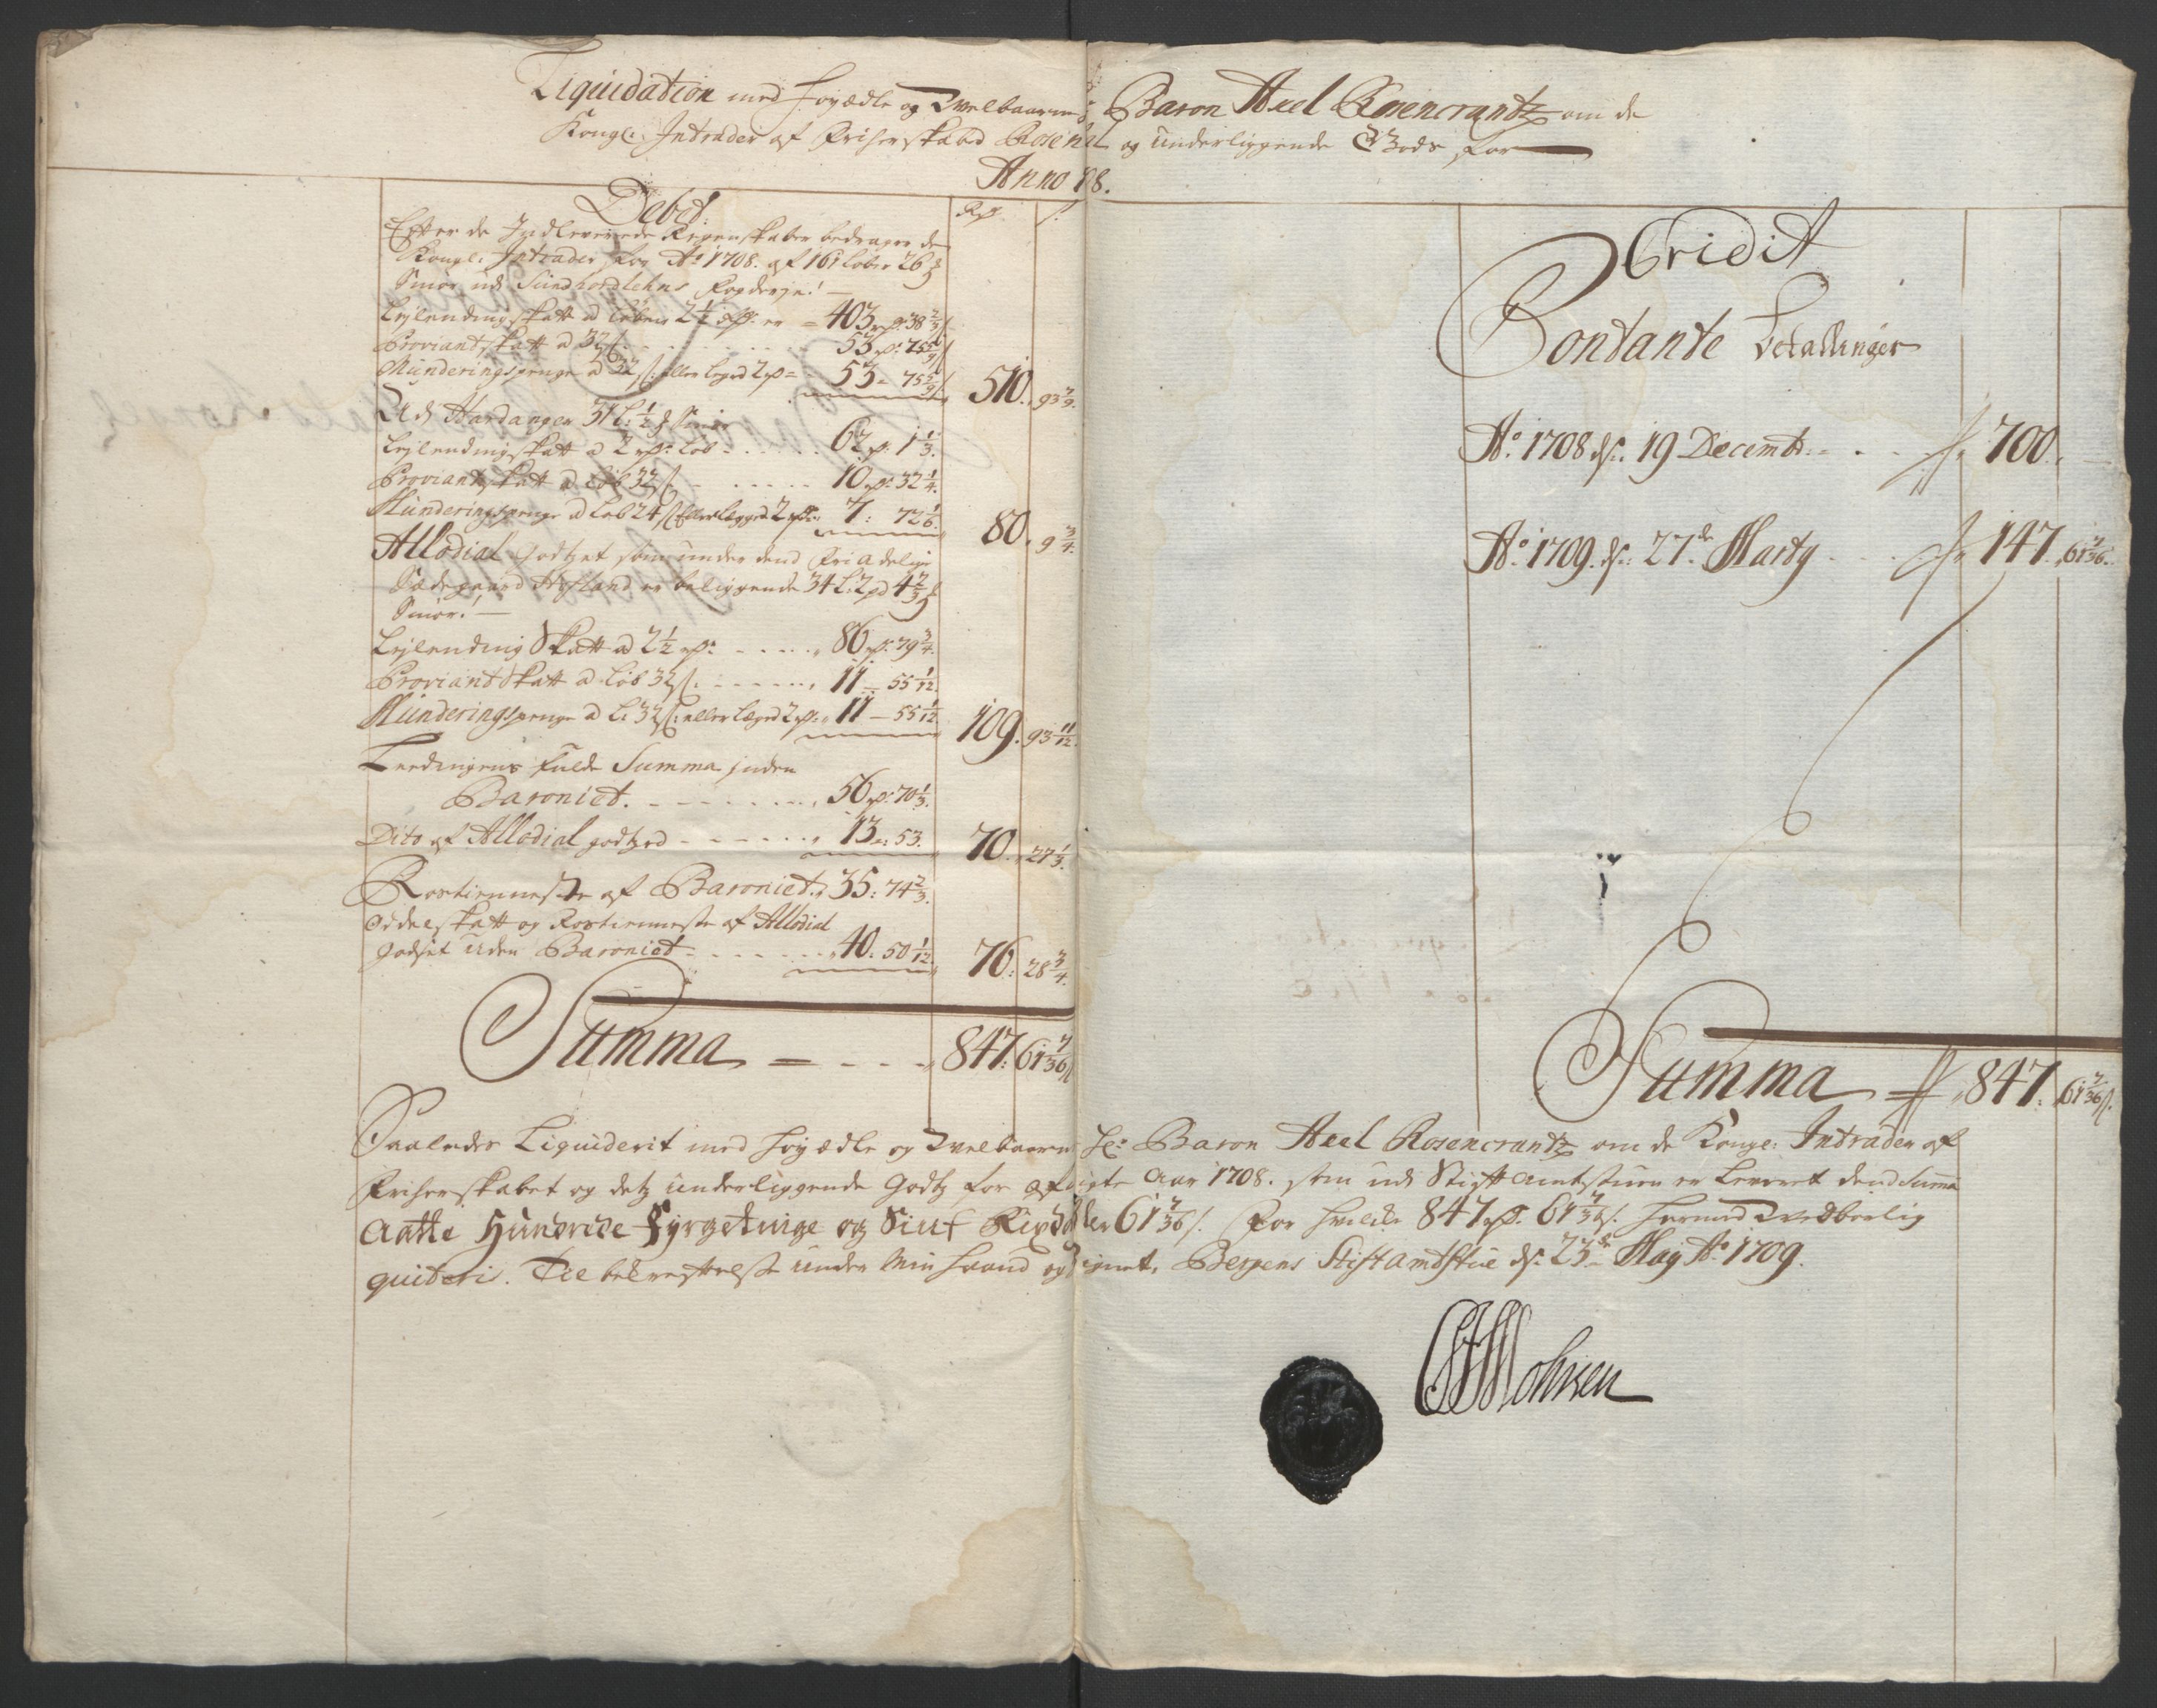 Liquidation med Høyædle og Welbaarne Hr. Baron Axel Rosencrantz om de
Kongl: Intrader af Friherskabed Rosendal og underliggende Gods for
Anno 1708.
Debet.
Rdr s.
Efter de Indleverede Regenskaber bedrager de
Kongl: Intrader for Ao 1708. af 161 Løber 26 ℔
Smør udj Sundhordlehns Fogderje:
Lejlending skatt ad Løben 2½ rdr er = 403 rdr: 38 2/3 s
Proviantskatt a 32 s. - - - 53 rdr: 75 5/9 s
Munderingspenge a 32 s: eller leged 2 rd = 53 = 75 5/9 s. 510. 93 7/9.
Udj Hardanger 31 L: ½ ℔ Smør
Lejlendingskatt a 2 rdr: Løb - - - 62 rd: 1 1/3.
Proviantskatt a Løb 32 s - - - 10 rdr: 32 1/4.
Munderingspenge a Løb 24 s Eller legged 2 rdr: 7: 72 1/6. 80. 9 3/4.
Allodial Godtzet som under dend Fri adelige
Sædegaard Hatland er beliggende 34 L: 2 pd 4 2/3 ℔
Smør:
Lejlending Skatt a 2½ rdr: - - - 86 rdr: 79 3/4.
Proviant Skatt a Løb 32 s: - - - 11 - 55 1/12.
Munderingspenge a L: 32 s: eller læged 2 rdr: 11 - 55 1/12. 109. 93 11/12.
Leedingens fulde Summa inden
Baroniet. - - - 56 rdr: 70 1/3.
Dito af Allodial godtzed - - - 13 =: 53. 70. 27 1/3.
Rostienneste af Baroniet. 35: 74 2/3.
Oddelskatt og Rostienneste af Allodial
Godset uden Baroniet - - - 40. 50 1/12. 76: 28 3/4.
Summa = - - - 847: 61 7/36 s
Credit
Contante Betallinger
Ao. 1708 ds: 19 Decembr: - - - 700. -
Ao. 1709. ds: 27de Marty - - - 147. 61 7/36.
Summa 847. 61 7/36 s.
Saaledes Liquiderit med Høyædle og Welbaarne Hr: Baron Axel Rosencrantz om de Kongl: Intrader af
Friherskabet og detz underliggende Godtz for afvigte Aar 1708. som udj Stiftamtstuen er Leveret dend Summa
Aatte Hundrede Fyrgetuige og Siuf Rixdaler 61 7/36 s. For hvilke 847 rdr. 61 7/36 s. hermed Vedbørlig
quiteris. Til bekreftelse under Min Haand og Signet, Bergens Stiftamtstue ds: 23de May Ao. 1709.